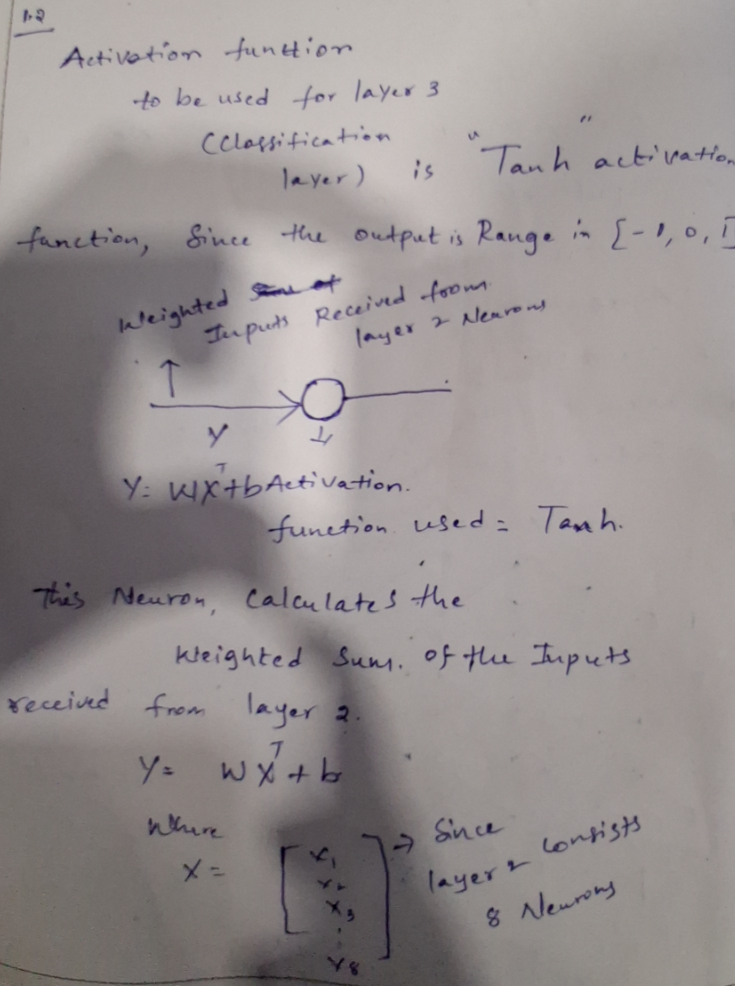 1.2
Activation function
to be used for layer 3
(Classification
layer) is "Tanh" activation
function, Since the output is Range in [-1, 0, 1]
Weighted
Inputs Received from
layer 2 Neurons
Y
Y = WX^T + b Activation.
function used = Tanh.
This Neuron, Calculates the
Weighted Sum. of the Inputs
received from layer 2.
Y = WX^T + b
Where
X = [x1 x2 x3 : x8] → Since
layer 2 consists
8 Neurons